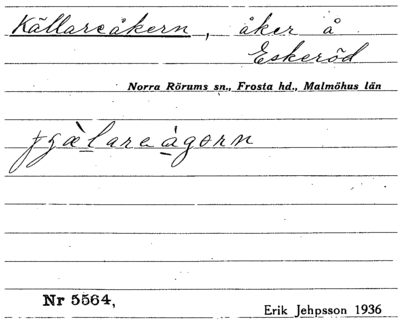 Källareåkern, åker å
Eskeröd
Norra Rörums sn., Frosta hd., Malmöhus län
Nr 5564,
Erik Jehpsson 1936